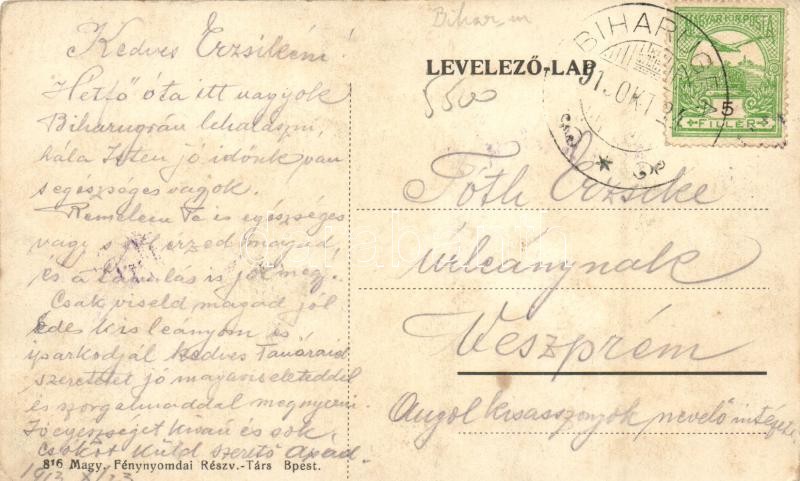 Bihar m
Kedves Erzsikém!
Hétfő óta itt vagyok
Biharugrán lehalászni,
hála Isten jó időnk van
s egészséges vagok.
Remélem Te is egészséges
vagy s jól érzed magad,
és a tanulás is jól megy.
Csak viseld magad jól
édes kis leányom és
iparkodjál kedves Tanáraid
szeretetét jó magaviseleteddel
és szorgalmaddal megnyerni.
Jó egészséget kíván és sok
csókot küld szerető Apád
1913 X/23
816 Magy. Fénynyomdai Részv.-Társ Bpest.
LEVELEZŐ-LAP
5500
BIHARUGRA
913 OKT 2
MAGYAR KIR. POSTA
5
FILLÉR
Tóth Erzsike
úrleánynak
Veszprém
Angol kisasszonyok nevelő intézete